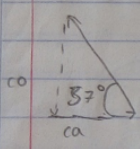 co
37°
ca